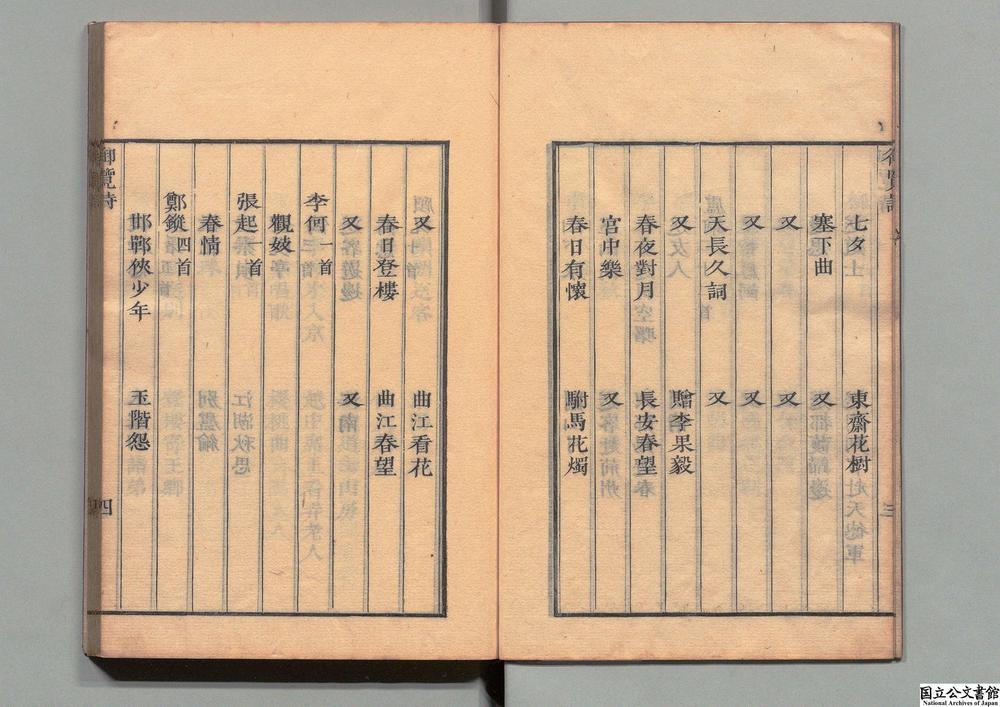 七夕　東齋花樹
塞下曲　又
又　又
又　又
天長久詞　又
又　贈李果毅
春夜對月　長安春望
宮中樂　又
春日有懷　駙馬花燭
三
又　曲江看花
春日登樓　曲江春望
又　又
李何一首
觀妓
張起一首
春情
鄭鏦四首
邯鄲俠少年　玉階怨
御覽詩
四
国立公文書館
National Archives of Japan